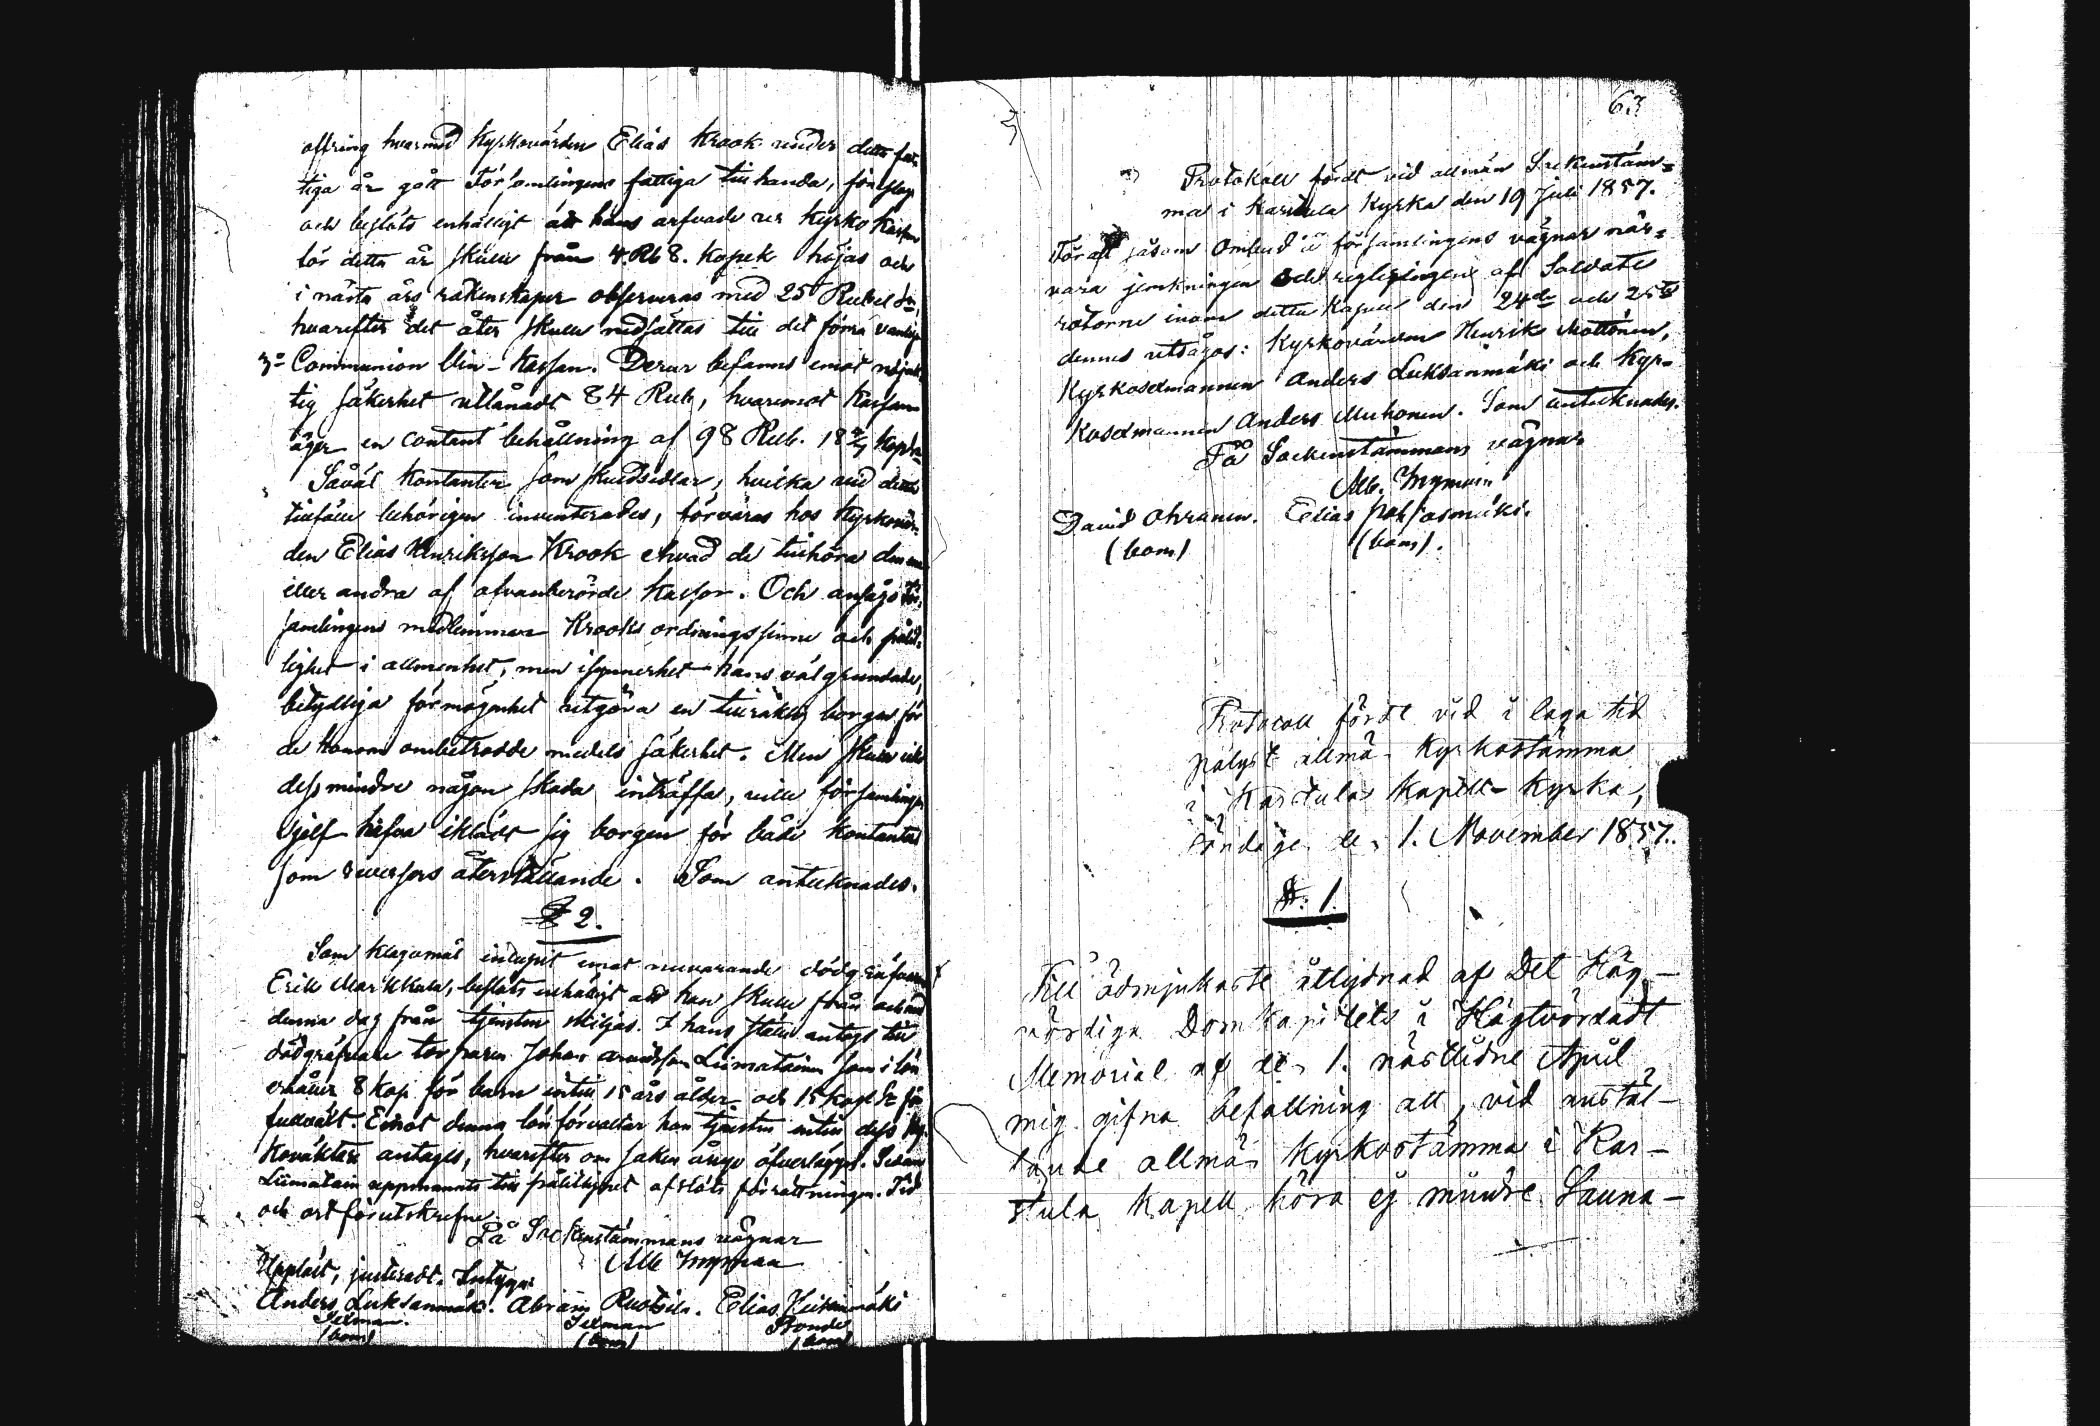 offring hvarmed Kyrkovärden Elias Krook under detta fat-
tiga år gått Församlingens fattiga tillhanda, föreslogs
och beslöts enhälligt att hans arfvode ur Kyrko Kassan
för detta år skulle från 4. Rb 8. Kopek höjas och
i nästa års räkenskaper observeras med 25 Rubel Sr,
hvarefter det åter skulle nedsättas till det förra vanliga
3o Communion Vin-Kassan. Derur befanns emot
tig säkerhet utlånadt 84 Rub, hvaremot Kassan
äger en contant behållning af 98 Rub. 18 Kopek
Såväl Kontanter som skuldsedlar, hvilka vid detta
tillfälle behörigen inventerades, förvaras hos Kyrkovär-
den Elias Henriksson Krook ehvad de tillhöra den ena
eller andra af ofvanberörde Kassor. Och ansågo För-
samlingens medlemmar Krooks ordningssinne och pålit-
lighet i allmenhet, men isynnerhet hans välgrundade,
betydliga förmögenhet utgöra en tillräcklig borgen för
de honom ombetrodde medels säkerhet. Men skulle icke
dess mindre någon skada inträffa, ville församlingen
sjelf hafva iklädt sig borgen för både Kontanters
som reversers återställande. Som antecknades.
§ 2.
Som klagomål inlupit emot nuvarande dödgräfvare
Erik Markkula, beslöts enhälligt att han skulle från och med
denna dag från tjensten skiljas. I hans ställe antogs till
dödgräfvare torparen Johan Liimatainen som i lön
erhåller 8 kop för barn intill 15 års ålder och 15 Kop Sr för
fullväxt. Emot denna lön förvaltar han tjensten intill dess Kyr-
kovaktare antages, hvarefter om saken ånyo öfverlägges. Sedan
Liimatain uppmannts till pålitlighet afslöts förrättningen. Tid
och ort förutskrefne.
På Sockenstämmans vägnar
Alb Inginaa
Uppläst, justeradt. Intyga:
Anders Luksanmäki. Abram Ruotsila. Elias
Sexman. Sexman Bonde
(bom) (bom) (bom)
63
Protokoll fördt vid allmän Sockenstäm-
ma i Karstula Kyrka den 19 Juli 1857.
För att såsom Ombud å församlingens vägnar när-
vara jemkningen och regleringen af Soldate
rotorne inom detta Kapell den 24de och 25te
dennes utsågos: Kyrkovärden Henrik Mottönen,
Kyrkosexmannen Anders Luksanmäki och Kyr-
kosexmannen Anders Muhonen. Som antecknades.
På Sockenstämmans vägnar
Alb.
David Ahvanen. Elias Pohjasmäki.
(bom) (bom).
Protocoll fördt vid i laga tid
pålyst allmän Kyrkostämma
i Karstula Kapell-Kyrka,
Söndagen den 1. November 1857.
§. 1.
Till ödmjukaste åtlydnad af Det Hög-
vördiga Domkapitlets i Högtvördadt
Memorial af den 1. nästlidne April
mig gifna befallning att, vid anstäl-
lande allmän Kyrkostämma i Kar-
stula Kapell höra ej mindre Sauna-